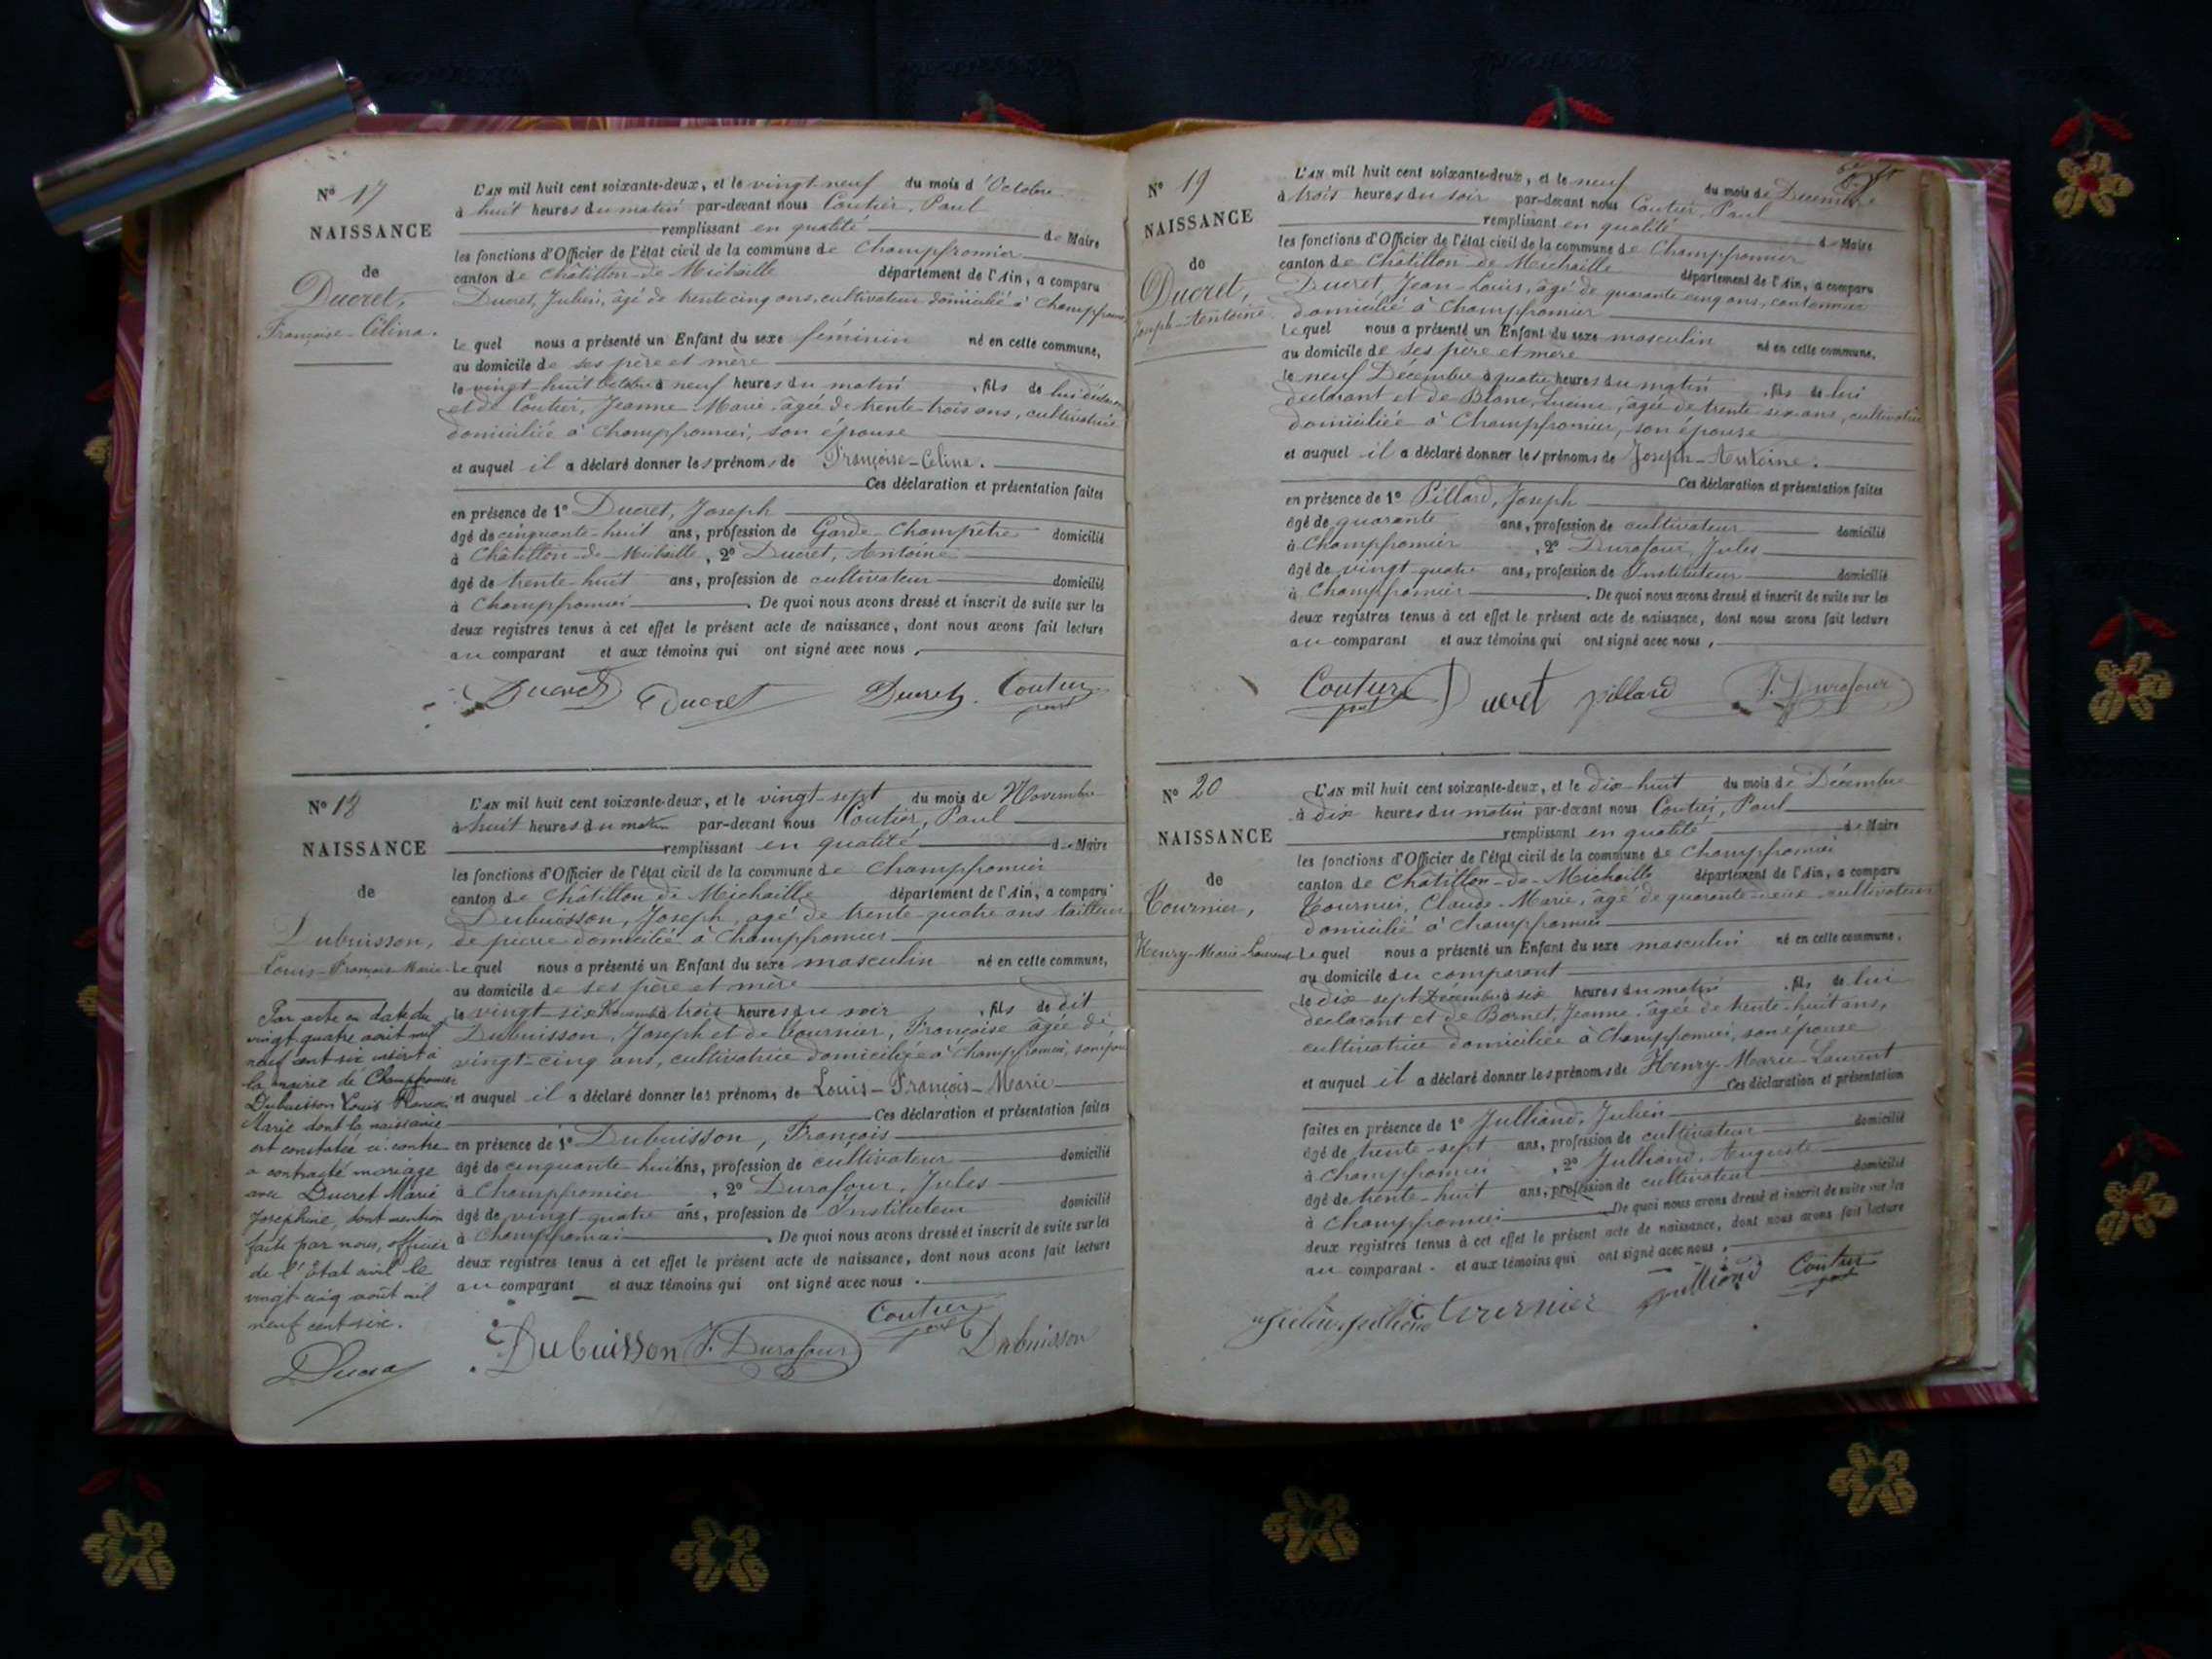 N° 17
NAISSANCE
de
Ducret,
Françoise-Célina.
L'AN mil huit cent soixante-deux, et le vingt-neuf du mois d'Octobre
à huit heures du matin par-devant nous Coutier, Paul
remplissant en qualité de Maire
les fonctions d'Officier de l'état civil de la commune de Champfromier
canton de Châtillon-de-Michaille département de l'Ain, a comparu
Ducret, Julien, âgé de trente cinq ans, cultivateur domicilié à Champfromier
Lequel nous a présenté un Enfant du sexe féminin né en cette commune,
au domicile de ses père et mère
le vingt-huit Octobre à neuf heures du matin, fils de lui déclarant
et de Coutier, Jeanne-Marie, âgée de trente-trois ans, cultivatrice
domiciliée à Champfromier, son épouse
et auquel il a déclaré donner les prénoms de Françoise-Célina.
Ces déclaration et présentation faites
en présence de 1° Ducret, Joseph
âgé de cinquante-huit ans, profession de Garde-Champêtre domicilié
à Châtillon-de-Michaille, 2° Ducret, Antoine
âgé de trente-huit ans, profession de cultivateur domicilié
à Champfromier. De quoi nous avons dressé et inscrit de suite sur les
deux registres tenus à cet effet le présent acte de naissance, dont nous avons fait lecture
au comparant et aux témoins qui ont signé avec nous.
Ducret Ducret Ducret. Coutier
N° 18
NAISSANCE
de
Dubuisson,
Louis-François-Marie
Par acte en date du
vingt quatre août mil
neuf cent six inscrit à
la mairie de Champfromier
Dubuisson Louis François
Marie dont la naissance
est constatée ci-contre
a contracté mariage
avec Ducret Marie
Josephine, dont mention
faite par nous, officier
de l'État civil le
vingt cinq août mil
neuf cent six.
L'AN mil huit cent soixante-deux, et le vingt-sept du mois de Novembre
à huit heures du matin par-devant nous Coutier, Paul
remplissant en qualité de Maire
les fonctions d'Officier de l'état civil de la commune de Champfromier
canton de Châtillon de Michaille département de l'Ain, a comparu
Dubuisson, Joseph, âgé de trente-quatre ans tailleur
de pierre domicilié à Champfromier
Lequel nous a présenté un Enfant du sexe masculin né en cette commune,
au domicile de ses père et mère
le vingt-six Novembre à trois heures du soir, fils de dit
Dubuisson, Joseph et de Tournier, Françoise âgée de
vingt-cinq ans, cultivatrice domiciliée à Champfromier, son épouse
et auquel il a déclaré donner les prénoms de Louis-François-Marie
Ces déclaration et présentation faites
en présence de 1° Dubuisson, François
âgé de cinquante-huit ans, profession de cultivateur domicilié
à Champfromier, 2° Durafour, Jules
âgé de vingt-quatre ans, profession de Instituteur domicilié
à Champfromier. De quoi nous avons dressé et inscrit de suite sur les
deux registres tenus à cet effet le présent acte de naissance, dont nous avons fait lecture
au comparant et aux témoins qui ont signé avec nous.
Dubuisson J. Durafour Coutier Dubuisson
N° 19
NAISSANCE
de
Ducret,
Joseph-Antoine
L'AN mil huit cent soixante-deux, et le neuf du mois de Décembre
à trois heures du soir par-devant nous Coutier, Paul
remplissant en qualité de Maire
les fonctions d'Officier de l'état civil de la commune de Champfromier
canton de Châtillon-de-Michaille département de l'Ain, a comparu
Ducret, Jean-Louis, âgé de quarante cinq ans, cantonnier
domicilié à Champfromier
Lequel nous a présenté un Enfant du sexe masculin né en cette commune,
au domicile de ses père et mère
le neuf Décembre à quatre heures du matin, fils de lui
déclarant et de Blanc, âgée de trente-six ans, cultivatrice
domiciliée à Champfromier, son épouse
et auquel il a déclaré donner les prénoms de Joseph-Antoine.
Ces déclaration et présentation faites
en présence de 1° Pillard, Joseph
âgé de quarante ans, profession de cultivateur domicilié
à Champfromier, 2° Durafour, Jules
âgé de vingt-quatre ans, profession de Instituteur domicilié
à Champfromier. De quoi nous avons dressé et inscrit de suite sur les
deux registres tenus à cet effet le présent acte de naissance, dont nous avons fait lecture
au comparant et aux témoins qui ont signé avec nous.
Coutier Ducret Pillard J. Durafour
N° 20
NAISSANCE
de
Tournier,
Henry-Marie-Laurent
L'AN mil huit cent soixante-deux, et le dix-huit du mois de Décembre
à dix heures du matin par-devant nous Coutier, Paul
remplissant en qualité de Maire
les fonctions d'Officier de l'état civil de la commune de Champfromier
canton de Châtillon-de-Michaille département de l'Ain, a comparu
Tournier, Claude-Marie, âgé de quarante-deux cultivateur
domicilié à Champfromier
Lequel nous a présenté un Enfant du sexe masculin né en cette commune,
au domicile du comparant
le dix-sept Décembre à six heures du matin, fils de lui
déclarant et de Bornet, Jeanne, âgée de trente-huit ans,
cultivatrice domiciliée à Champfromier, son épouse
et auquel il a déclaré donner les prénoms de Henry-Marie-Laurent
Ces déclaration et présentation
faites en présence de 1° Julliand, Julien domicilié
âgé de trente-sept ans, profession de cultivateur
à Champfromier, 2° Julliand, Auguste
âgé de trente-huit ans, profession de cultivateur domicilié
à Champfromier. De quoi nous avons dressé et inscrit de suite sur les
deux registres tenus à cet effet le présent acte de naissance, dont nous avons fait lecture
au comparant. et aux témoins qui ont signé avec nous.
Tournier Julliand Coutier